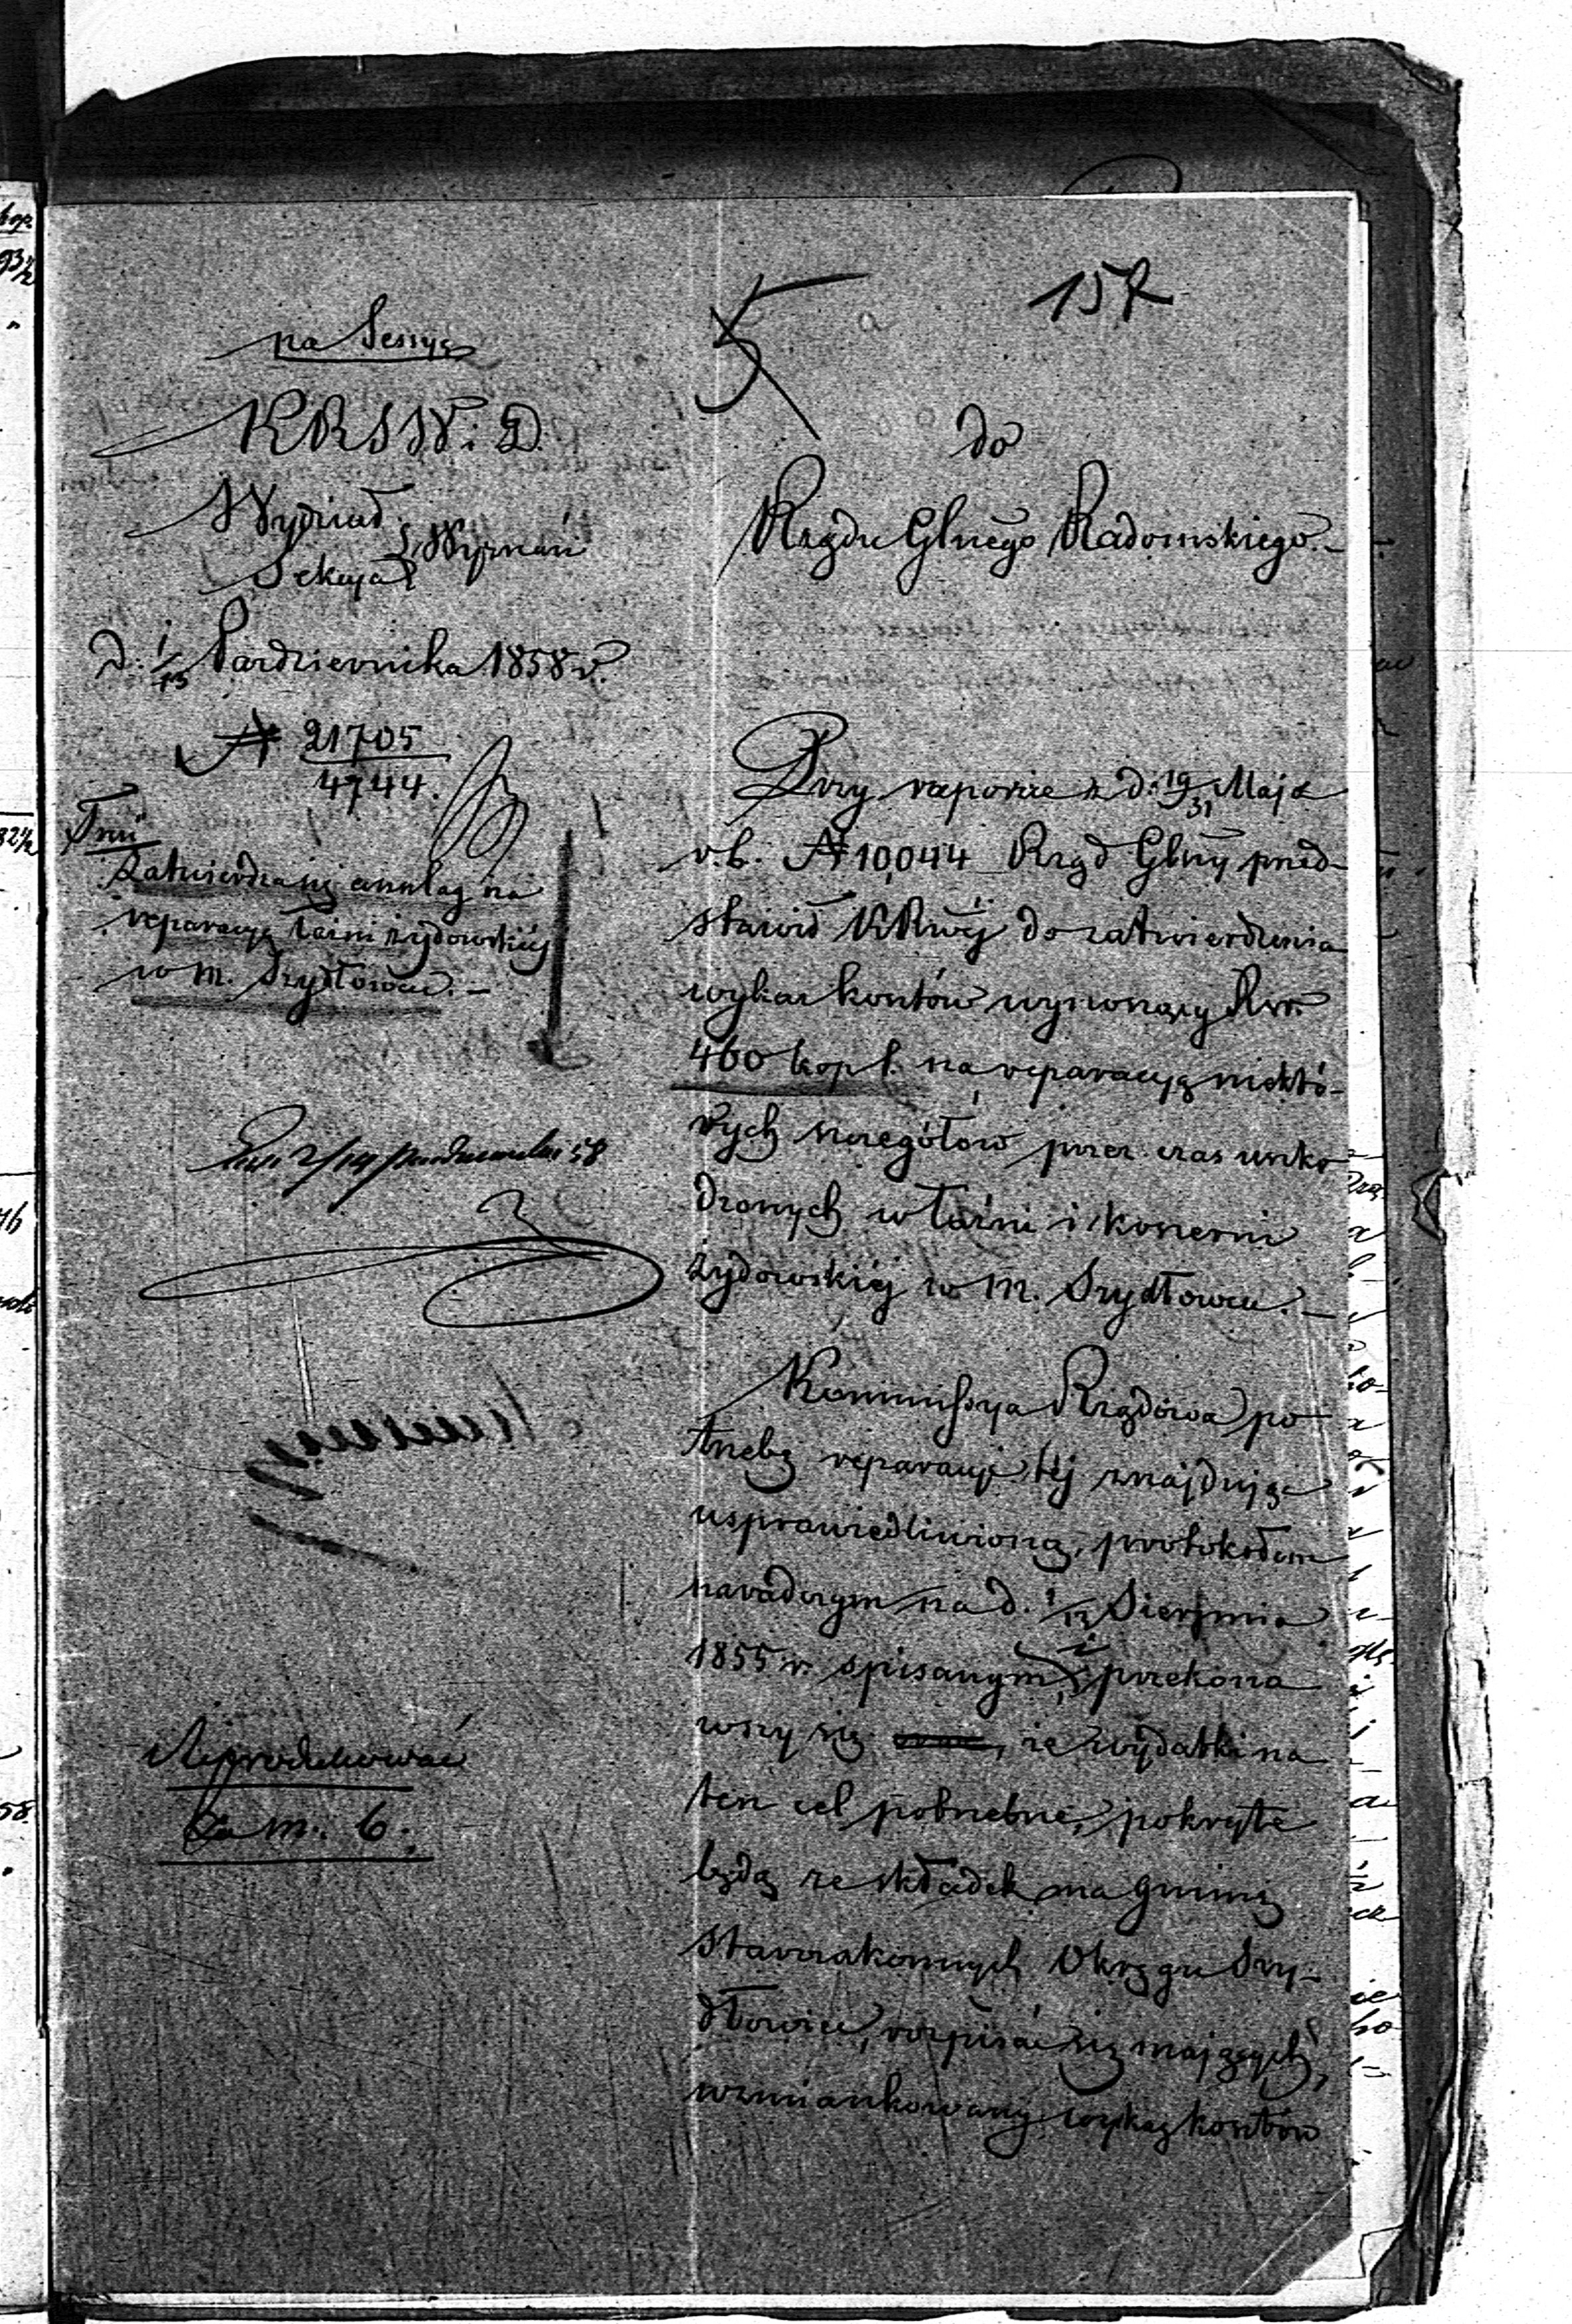 157
na Sessyą
KRSW i D.
Wydział
Sekcya
Wyznań
d. 1/13 Października 1858 r.
№ 21705/4744.
Zatwierdza się anszlag na
reparacyą łaźni żydowskiej
w m. Szydłowcu. –
Reprodukować
za m. 6.
do
Rządu Glnego Radomskiego. –
Przy raporcie z d. 19/31 Maja
r. b. № 10,044 Rząd Glny przed-
stawił KRwéj do zatwierdzenia
wykaz kosztów wynoszący Rsr.
460 kop 1. na reparacyą niektó-
rych szczegółów przez czas uszko
dzonych w łaźni i koszerni
żydowskiéj w m. Szydłowcu. –
Kommissya Rządowa po
trzebę reparacyi téj znajdując
usprawiedliwioną, protokołem
naradczym na d. 1/13 Sierpnia
1855 r. spisanym, i przekona
wszy się, że wydatki na
ten cel potrzebne, pokryte
będą ze składek na gminę
starozakonnych Okręgu Szy-
dłowiec, rozpisać się mających,
wzmiankowany wykaz kosztów